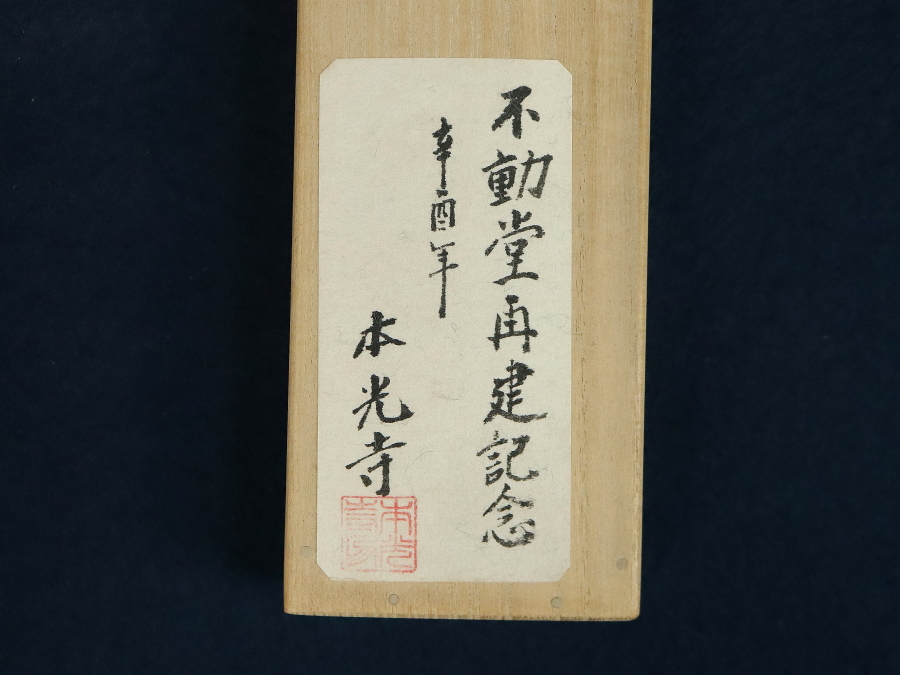 不動堂再建記念
辛酉年
本光寺